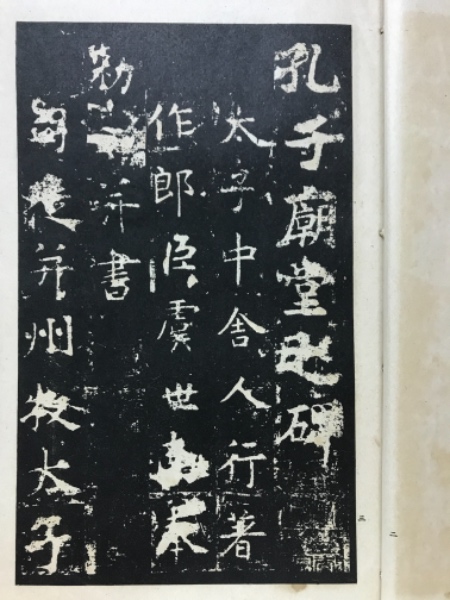 孔子廟堂之碑
太子中舍人行著
作郎臣虞世南奉
勑撰并書
司徒并州牧太子
三
二